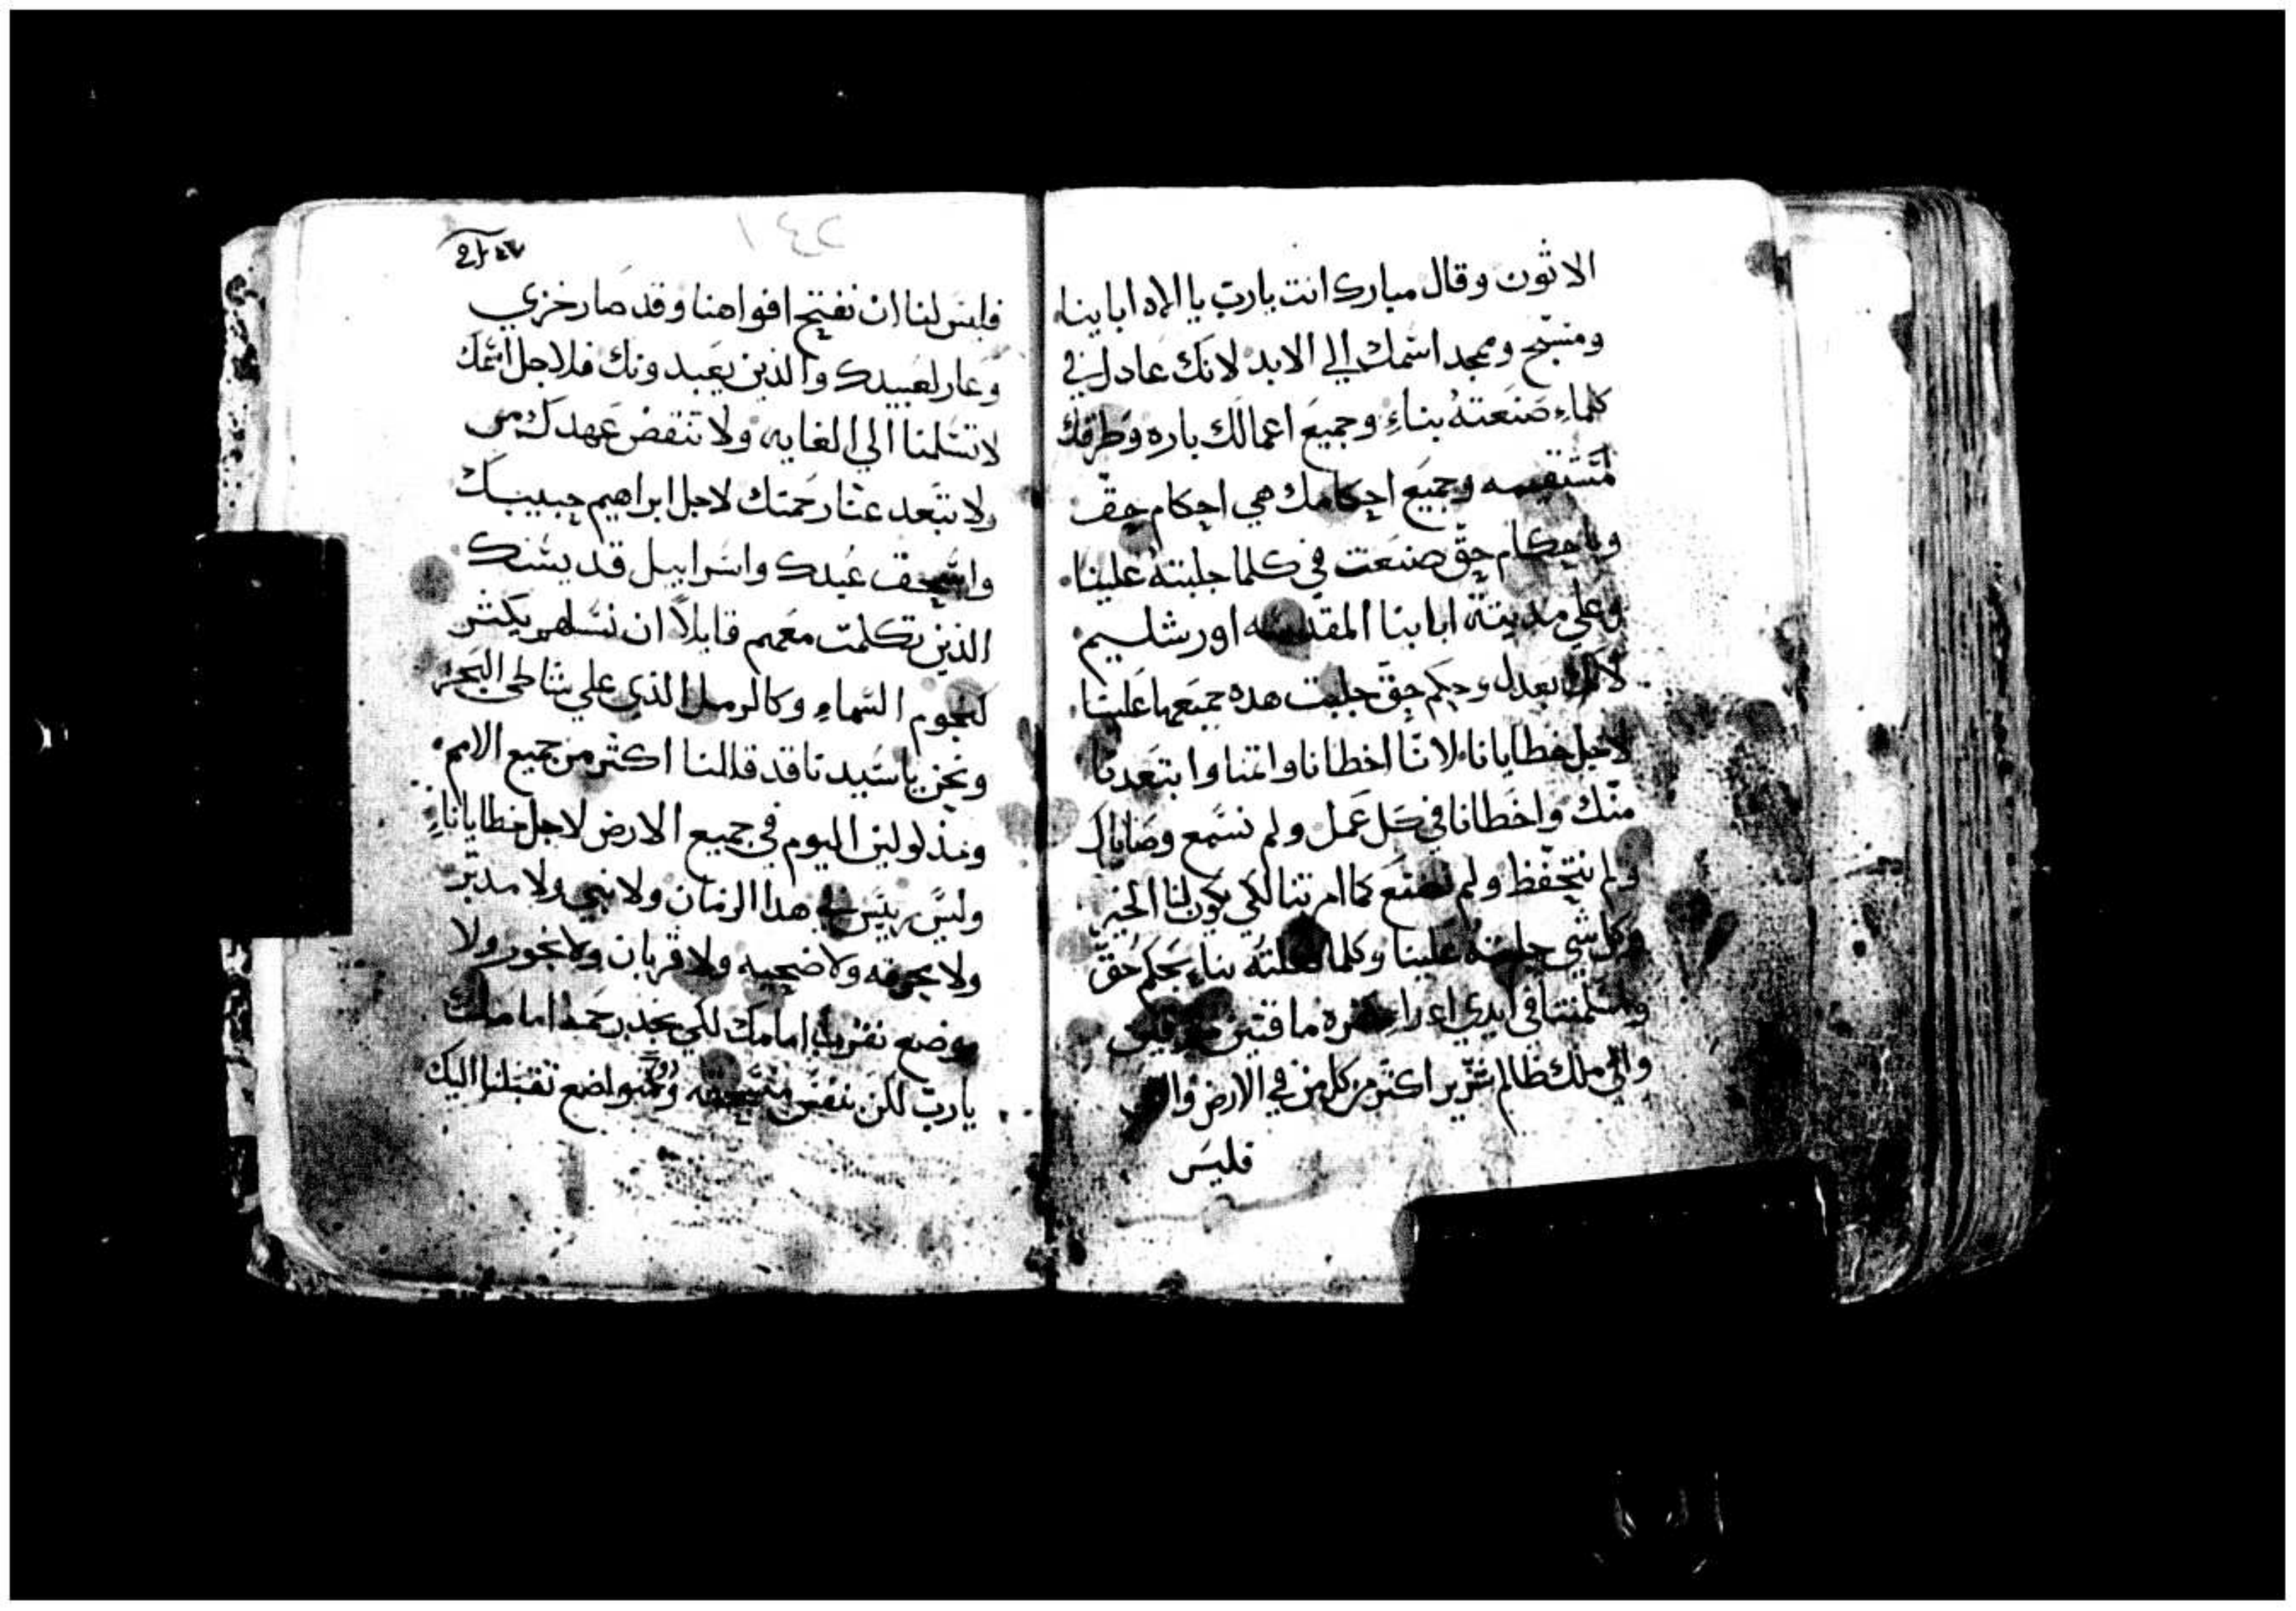 الاثون وقال مبارك انت يارب يا الاه اباينا
ومسبح وممجد اسمك الي الابد لانك عادل في
كلماء صنعته بناء وجميع اعمالك باره وطرقك
مستقيمه وجميع احكامك هي احكام حق
وباحكام حق صنعت في كلما جلبته علينا
وعلي مدينة اباينا المقدسه اورشليم
لانك بعدل وحكم حق جلبت هده جميعها علينا
لاجل خطايانا لاننا اخطانا واتمنا وابتعدنا
منك واخطانا في كل عمل ولم نسمع وصاياك
ولم نتحفظ ولم نصنع كما امرتنا لكي يكون لنا الخير
وكل شي جلبته علينا وكلما فعلته بناء بحكم حق
واسلمتنا في ايدي اعداء ماقتين
والي ملك ظالم شرير اكثر من كل من في الارض والان
فليس
١٤٢
فليس لنا ان نفتح افواهنا وقد صار خزي
وعار لعبيدك والذين يعبدونك فلاجل اسمك
لا تسلمنا الي الغايه ولا تنقض عهدك من
ولا تبعد عنا رحمتك لاجل ابراهيم حبيبك
واسحق عبدك واسراييل قديسك
الذين تكلمت معهم قايلاً ان نسلهم يكثر
كنجوم السماء وكالرمل الذي علي شاطي البحر
ونحن ياسيدنا قد قللنا اكثر من جميع الامم
ومذلولين اليوم في جميع الارض لاجل خطاياناء
وليس رييس في هدا الزمان ولا نبي ولا مدبر
ولا محرقه ولا ضحيه ولا قربان ولا بخور ولا
موضع نقرب امامك لكي نجد رحمه امامك
يارب لكن بنفس منسحقه وبتواضع تقبلنا اليك